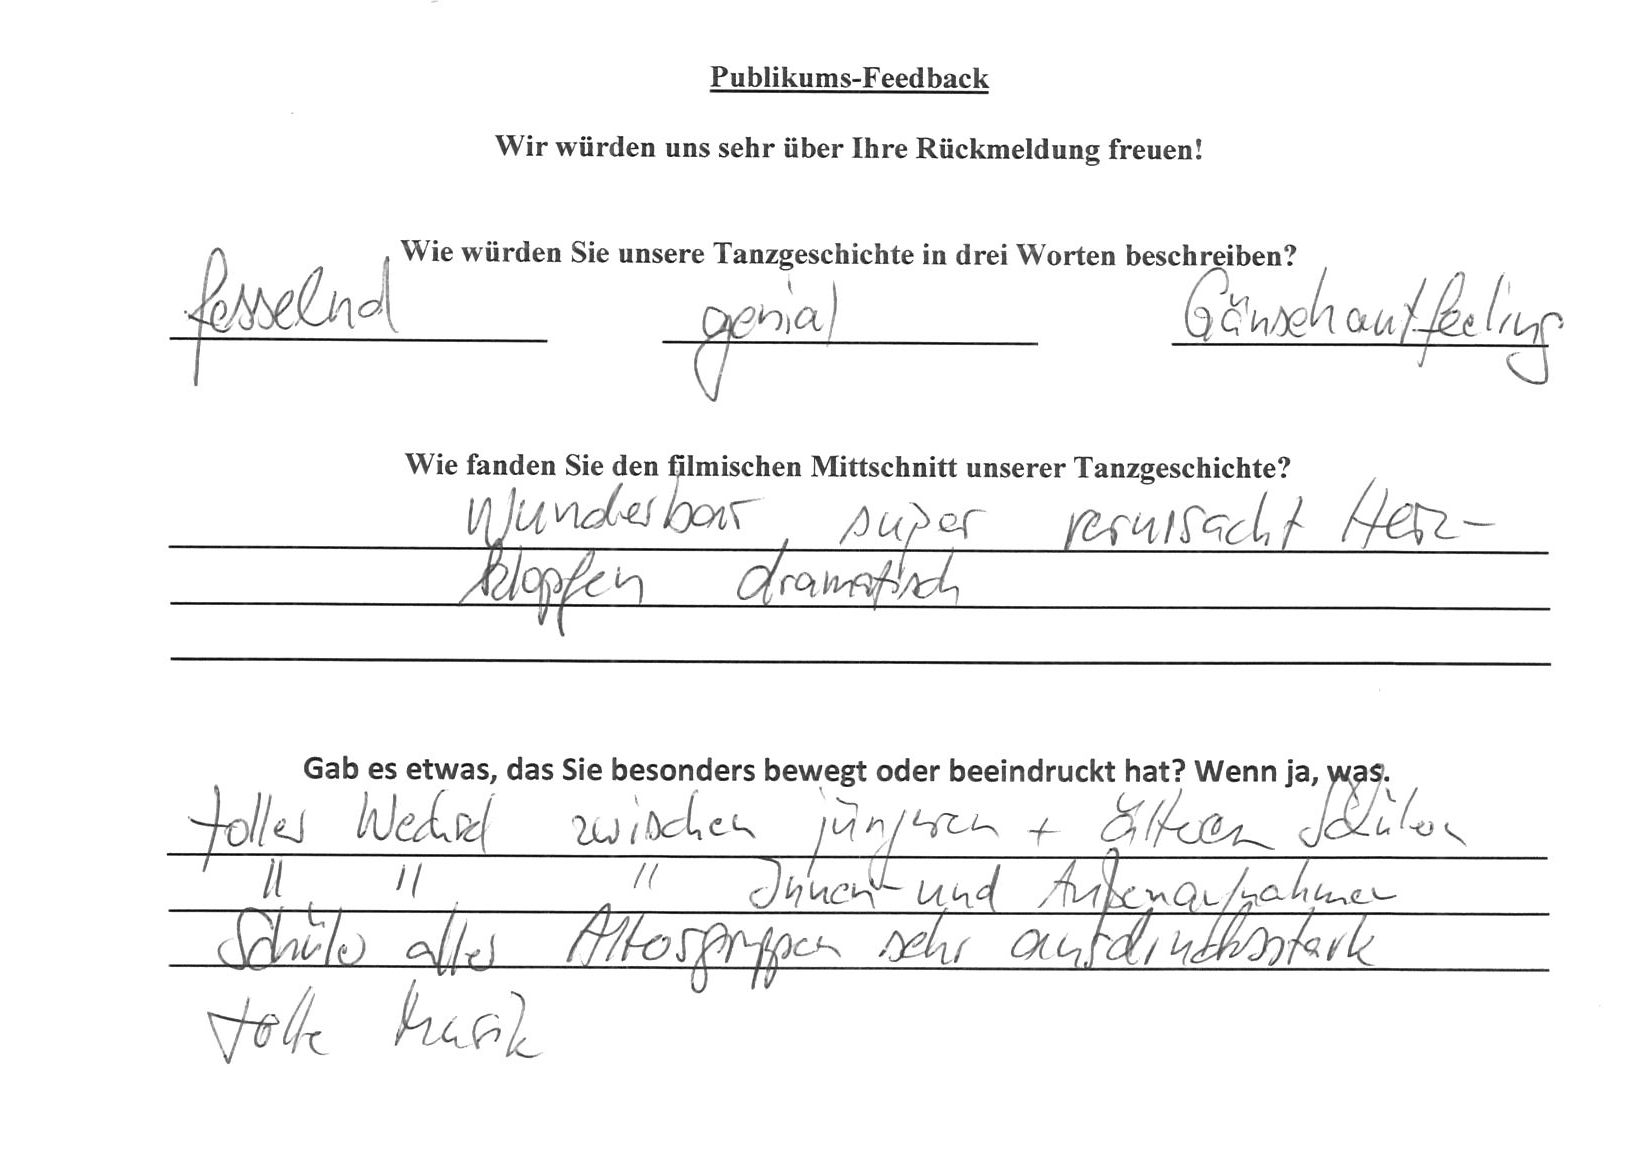 Publikums-Feedback
Wir würden uns sehr über Ihre Rückmeldung freuen!
Wie würden Sie unsere Tanzgeschichte in drei Worten beschreiben?
fesselnd genial Gänsehautfeeling
Wie fanden Sie den filmischen Mittschnitt unserer Tanzgeschichte?
Wunderbar, super verursacht Herz-
klopfen dramatisch
Gab es etwas, das Sie besonders bewegt oder beeindruckt hat? Wenn ja, was.
toller Wechsel zwischen jüngeren + älteren Schülern
" " " Innen- und Außenaufnahmen
Schüler aller Altersgruppen sehr ausdrucksstark
tolle Musik